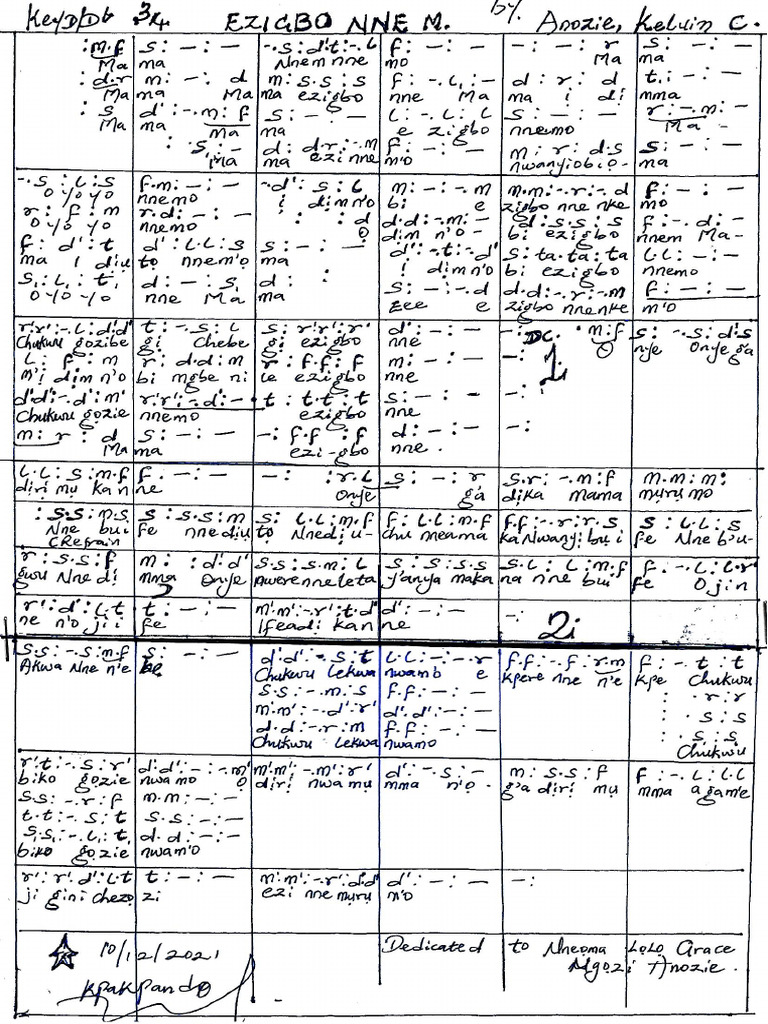 Key D/Db 3/4 EZIGBO NNE M. by. Anozie, Kelvin C.
:m.f | s : – : – | -.s : d't : -.l | f : – : – | – : – : r | s : – : –
Ma | ma | Nnem nne | mo | Ma | ma
:d.r | m : – : d | m : s.s : s | f : -.l, : – | d : r : d | t, : – : –
Ma | ma Ma | ma ezigbo | nne Ma | ma i di | mma
: s | d' : -.m : f | s : – : – | l : -.l : l | s : – : – | r : -.m : –
Ma | ma Ma | ma | e zigbo | nnemo | Ma –
: s, : – | d : d.r : -.m | f : – : – | m : r : d.s | s : –
Ma | ma ezi nne | m'o | nwanyiobio- | ma
-.s : l : s | f.m : – : – | -d' : s : l | m : – : -.m | m.m : -.r : -.d | f : – : –
o yo yo | nnemo | i dim n'o | bi e | zigbo nne nke | mo
r : f : m | r.d : – : – | : : d | d.d : -.m : – | d : s.s : s | f : -.d : –
o yo yo | nnemo | o | dim n'o – | bi ezigbo | nnem Ma-
f : d' : t | d' : l.l : s | s : – : – | d' : -.t : -.d' | s : ta.ta : ta | l.l : – : –
ma i diu | to nnem'o | ma | i dim n'o | bi ezigbo | nnemo
s, : l, : t, | d : – : s, | d : : | s : – : – | d.d : -.r : -.m | f : – : –
o yo yo | nne Ma | ma | Eee e | zigbo nnenke | m'o
r'r' : -.l : d'.d' | t : -.s : l | s : r'.r' : r' | d' : – : – | – : D.C. m.f | s : -.s : d'.s
Chukwu gozibe | gi Chebe | gi ezigbo | nne | 1 O | nye Onye ga
l : f : m | r : d.d : m | r : f.f : f | m : – : – | – :
m'i dim n'o | bi mgbe ni | ie ezigbo | nne
d'd' : -.d' : m' | r'r' : -.d' : – | t : t.t : t | s : – : – | – :
Chukwu gozie | nnemo | ezigbo | nne
m : r : d | s : – : – | – : f.f : f | d : – : – | – :
Ma | ma | ezi-gbo | nne.
l.l : s : m.f | f : – : – | – : : r.l | s : – : r | s.r : -.m : f | m.m : m :
diri mu kan | ne | onye | ga | dika mama | muru mo
: s.s : m.s | s : s.s : m | s : l.l : m.f | f : l.l : m.f | f.f : -.r : r.s | s : l.l : s
Nne bu | fe nnediu | to Nnediu- | chu mcama | kaNwanyi bu i | fe Nne bu-
(Refrain
r : s.s : f | m : : d'.d' | s.s : s.m : l | s.s : l.s : s | s.l : l : m.f | f : -.l : l.r'
guru Nne di | mma Onye | nwerenneleta | y'anya maka | na nne bui | fe Ojin
r' : d' : l.t | t : – : – | m'm' : -.r' : t.d' | d' : – : – | – :
ne n'o ji i | fe | Ifeadi kan | ne | 2i
s.s : -.s : m.f | s : – : – | d'd' : -.s : t | l.l : – : -.r | f.f : -.f : r.m | f : -.t : t
Akwa Nne n'e | be | Chukwu lekwa | nwamb e | Kpere nne n'e | kpe Chukwu
s.s : -.m : s | f.f : – : – | : r : r
m'm' : -.d' : r' | d'.d' : – : – | : s : s
d.d : -.r : m | f.f : – : – | : s : s
Chukwu lekwa | nwamo | Chukwu
r't : -.s : r' | d'd' : – : -.m' | m'm' : -.m' : r' | d' : -.s : – | m : s.s : f | f : -.l : l.l
biko gozie | nwamo o | diri nwa mu | mma n'o - | g'a diri mu | mma agam'e
s.s : -.r : f | m.m : – : –
t.t : -.s : t | s.s : – : –
s,s, : -.l, : t, | d.d : – : –
biko gozie | nwam'o
r' : r'.d' : l.t | t : – : – | m'm' : -.r' : d'.d' | d' : – : – | – :
ji gini chezo | zi | ezi nne muru | n'o
10/12/2021 Dedicated to Nneoma Lolo Grace
Kpakpando Ngozi Anozie.